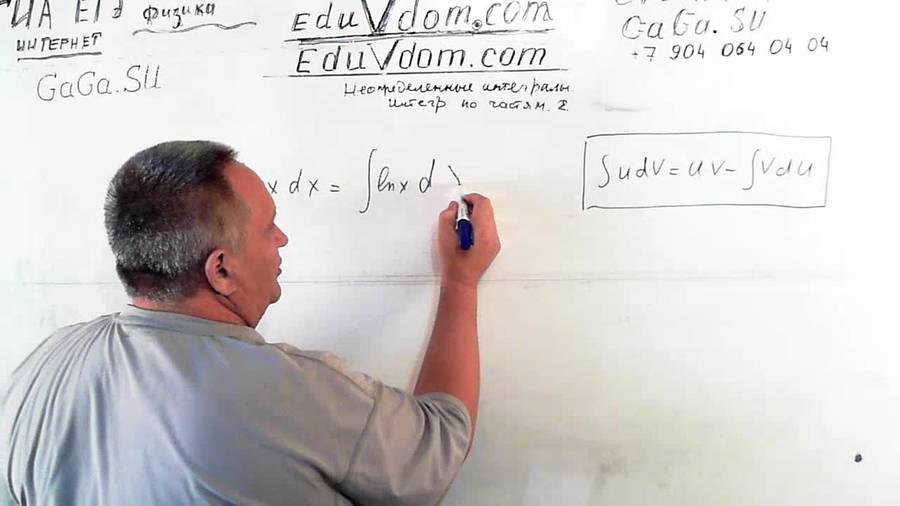 ЕГЭ физика
ИНТЕРНЕТ
GaGa.SU
EduVdom.com
EduVdom.com
Неопределенные интегралы.
Интегр по частям. 2.
GaGa.SU
+7 904 064 04 04
x dx = ∫ lnx d
∫UdV = UV - ∫VdU